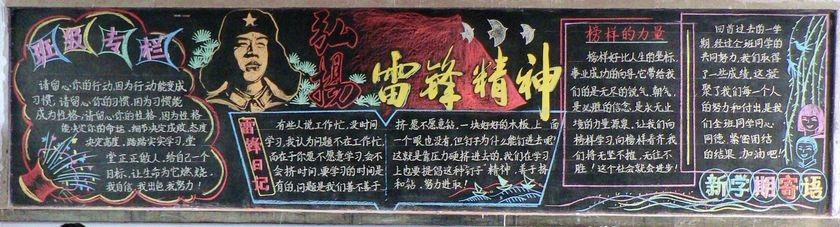 班级专栏
请留心你的行动,因为行动能变成
习惯,请留心你的习惯,因为习惯能
成为性格;请留心你的性格,因为性格
能决定你的命运。细节决定成败,态度
决定高度,踏踏实实学习,堂
堂正正做人,给自己一个
目标,让生命为它燃烧。
我自信,我出色,我努力!
弘扬
雷锋精神
雷锋日记
有些人说工作忙、没时间
学习,我认为问题不在工作忙,
而在于你是不愿意学习,会不
会挤时间.要学习的时间是
有的,问题是我们善不善于
挤,愿不愿意钻,一块好好的木板,上面
一个眼也没有,但钉子为什么能钉进去呢?
这就是靠压力硬挤进去的,我们在学习
上也要提倡这种钉子精神,善于挤
和钻,努力进取!
榜样的力量
榜样好比人生的坐标,
事业成功的向导,它带给我
们的是无尽的锐气、朝气,
是必胜的信念,是永无止
境的力量源泉,让我们向
榜样学习,向榜样看齐,我
们将无坚不摧,无往不
胜!这个社会就会进步!
回首过去的一学
期,经过全班同学的
共同努力,我们取得
了一些成绩,这凝
聚了我们每一个人
的努力和付出,是我
们全班同学同心
同德,紧密团结
的结果,加油吧!!
新学期寄语